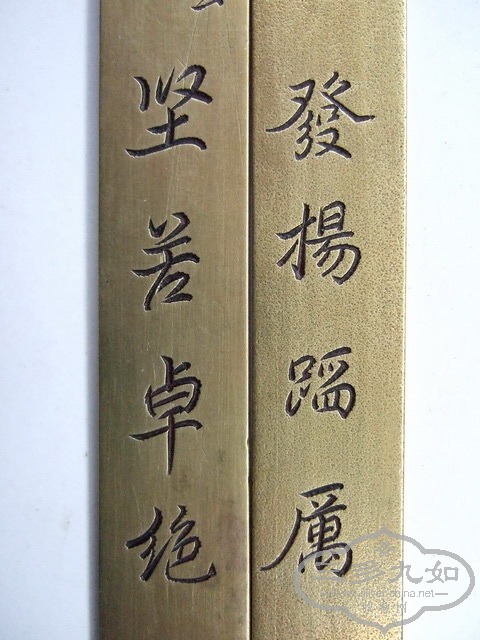 發揚蹈厲
坚苦卓絕
九如